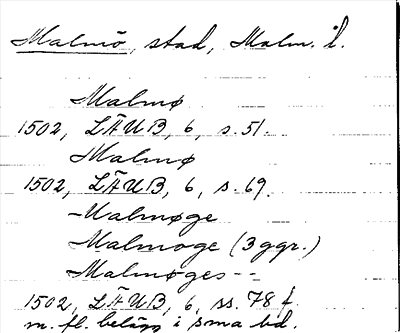 Malmö, stad, Malm. l.
Malmø
1502, LÄUB, 6, s. 51.
Malmø
1502, LÄUB, 6, s. 69.
Malmøge
Malmoge (3 ggr.)
Malmøges--
1502, LÄUB, 6, ss. 78 f.
m. fl. belägg i sma bd.